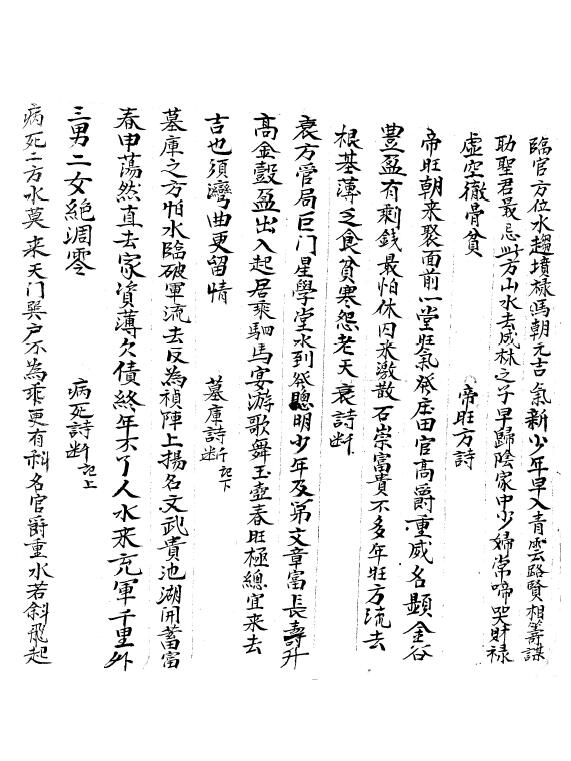 臨官方位水趨墳祿馬朝元古氣新少年早入青雲路賢相籌謀
助聖君最忌此方山水去成材之子早歸陰家中少婦常啼哭財祿
虛空徹骨貧　帝旺方詩
帝旺朝來聚面前一堂旺氣發庄田官高爵重威名顯金谷
豊盈有剩錢最怕休囚來激散石崇富貴不多年旺方流去
根基薄乏食貧寒怨老天衰詩断
衰方管局巨门星學堂水到發聰明少年及第文章富長壽升
高金穀盈出入起居乘駟馬宴游歌舞玉壺春旺極總宜來去
吉也須灣曲更留情　墓庫詩断記下
墓庫之方怕水臨破軍流去反為禎陣上揚名文武貴池湖開蓄富
春申荡然直去家資薄欠債終年不了人水來充軍千里外
三男二女絕凋零　病死詩断記上
病死二方水莫来天门巽户不為乖更有科名官爵重水若斜飛起